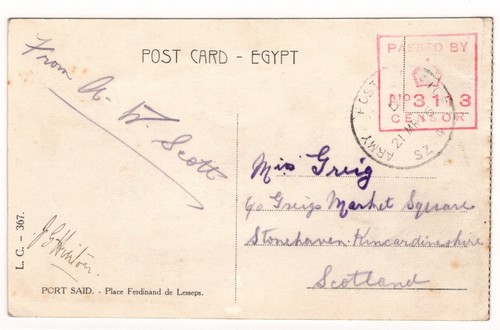 From A. W. Scott
POST CARD - EGYPT
PASSED BY
Nº 3183
CENSOR
ARMY POST OFFICE
SZ
21 MR
Miss Greig
c/o Greigs Market Square
Stonehaven. Kincardineshire
Scotland
L. C. - 367.
PORT SAID. - Place Ferdinand de Lesseps.